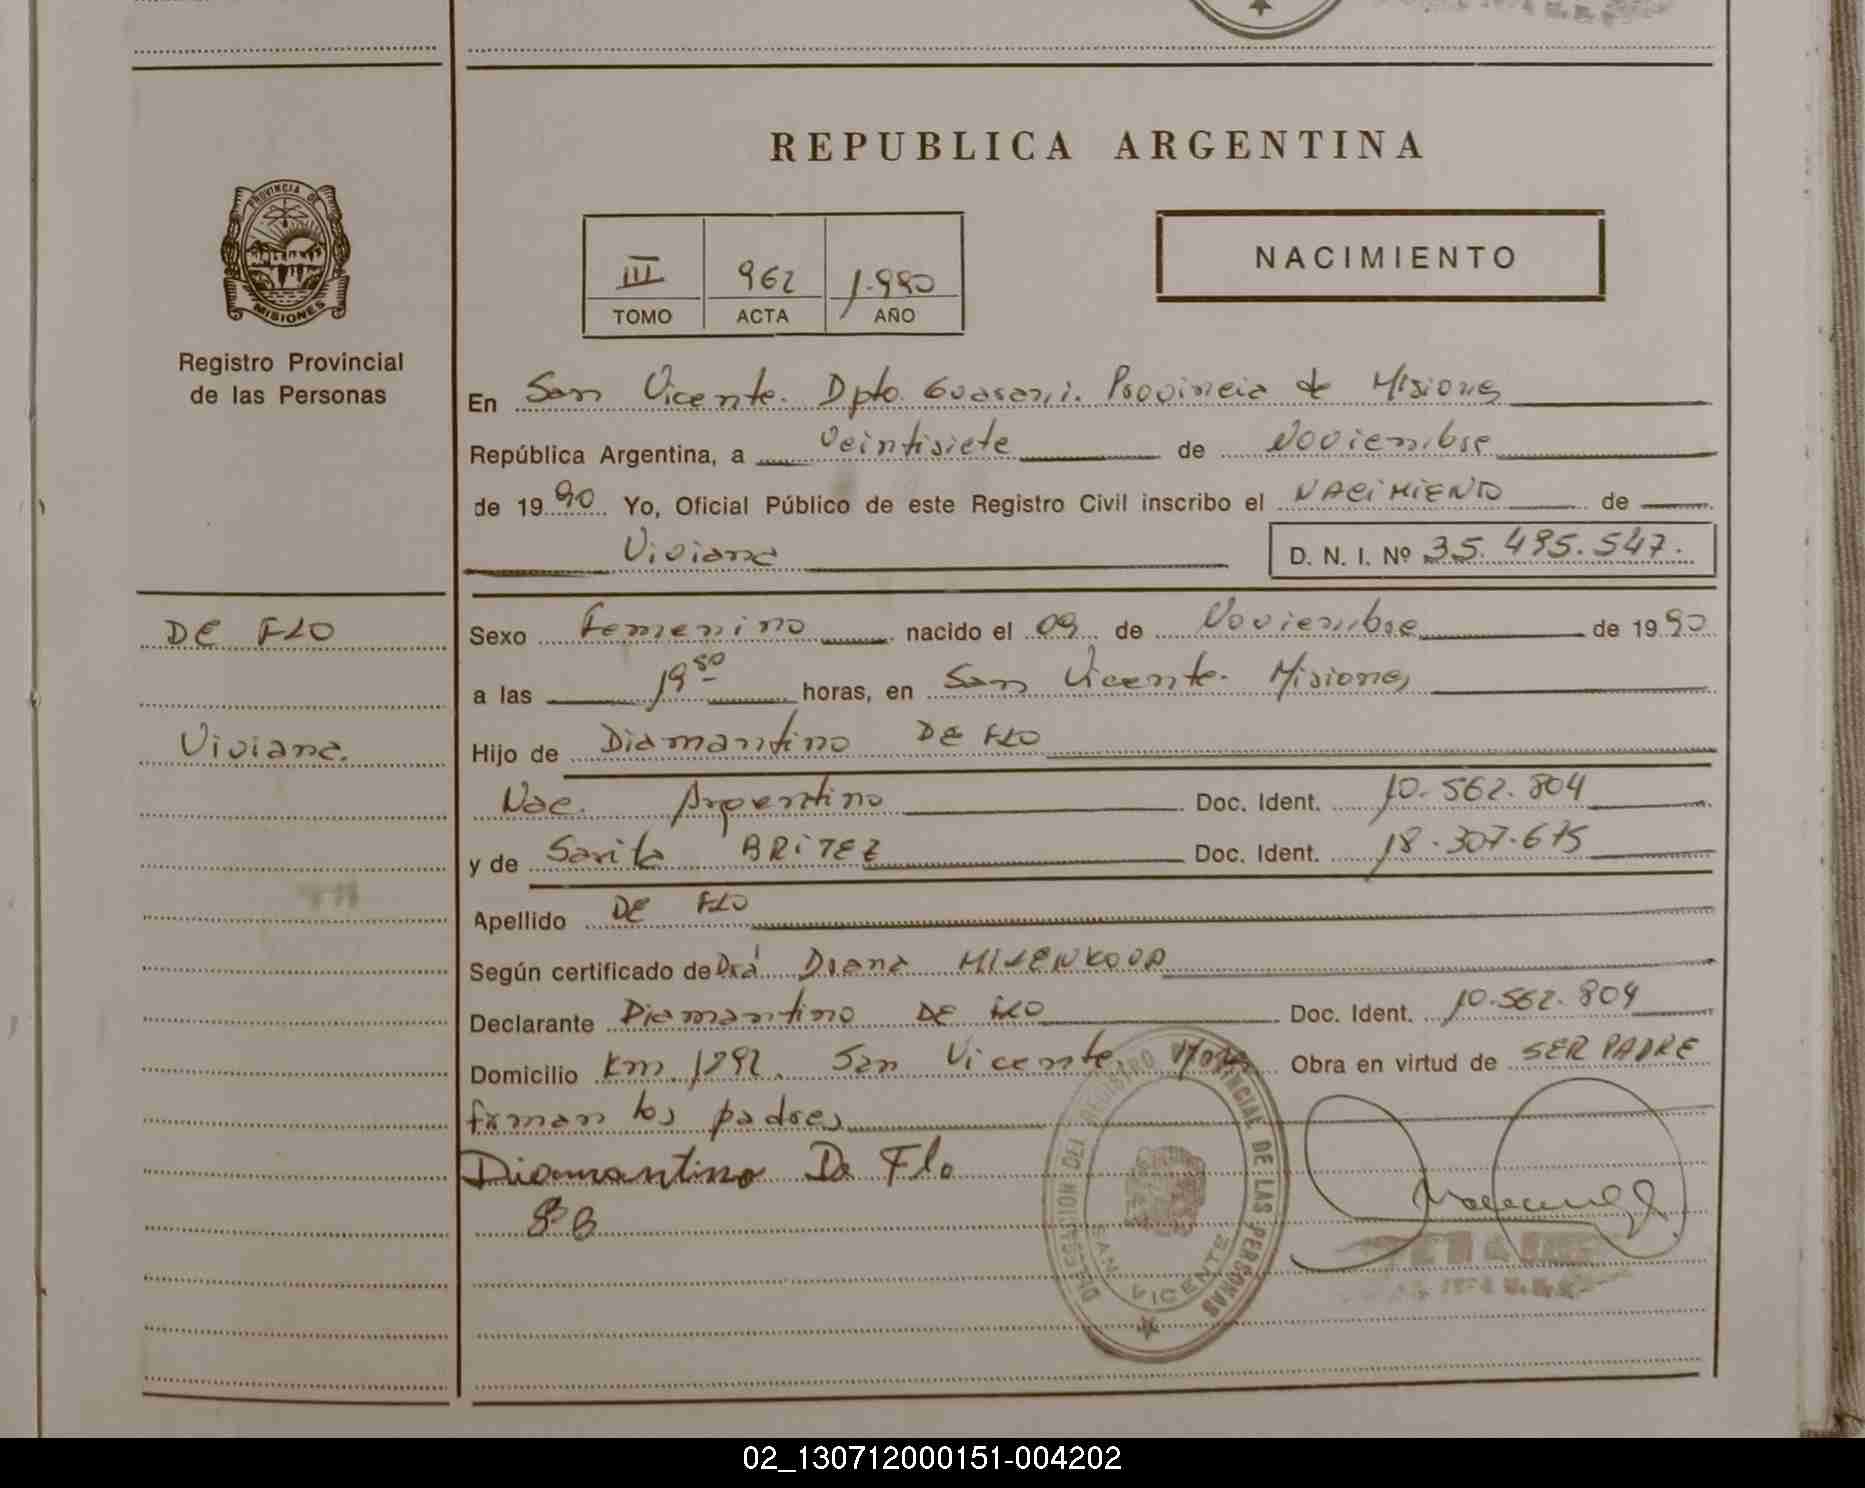 REPUBLICA ARGENTINA
PROVINCIA DE
MISIONES
Registro Provincial
de las Personas
III 962 1.990
TOMO ACTA AÑO
NACIMIENTO
En San Vicente. Dpto. Guaraní. Provincia de Misiones
República Argentina, a Veintisiete de Noviembre
de 1990 Yo, Oficial Público de este Registro Civil inscribo el NACIMIENTO de
Viviana
D. N. I. Nº 35.495.547.
DE FLO
Viviana.
Sexo Femenino nacido el 09 de Noviembre de 1990
a las 19 50 horas, en San Vicente. Misiones
Hijo de Diamantino DE FLO
Nac. Argentino Doc. Ident. 10.562.804
y de Sarita BRiTEZ Doc. Ident. 18.307.675
Apellido DE FLO
Según certificado de Dra Diana MILENKOVA
Declarante Diamantino DE FLO Doc. Ident. 10.562.804
Domicilio Km 1292. San Vicente Obra en virtud de SER PADRE
firman los padres
Diamantino De Flo
S B
DELEGACION DEL REGISTRO PROVINCIAL DE LAS PERSONAS
SAN VICENTE
02_130712000151-004202